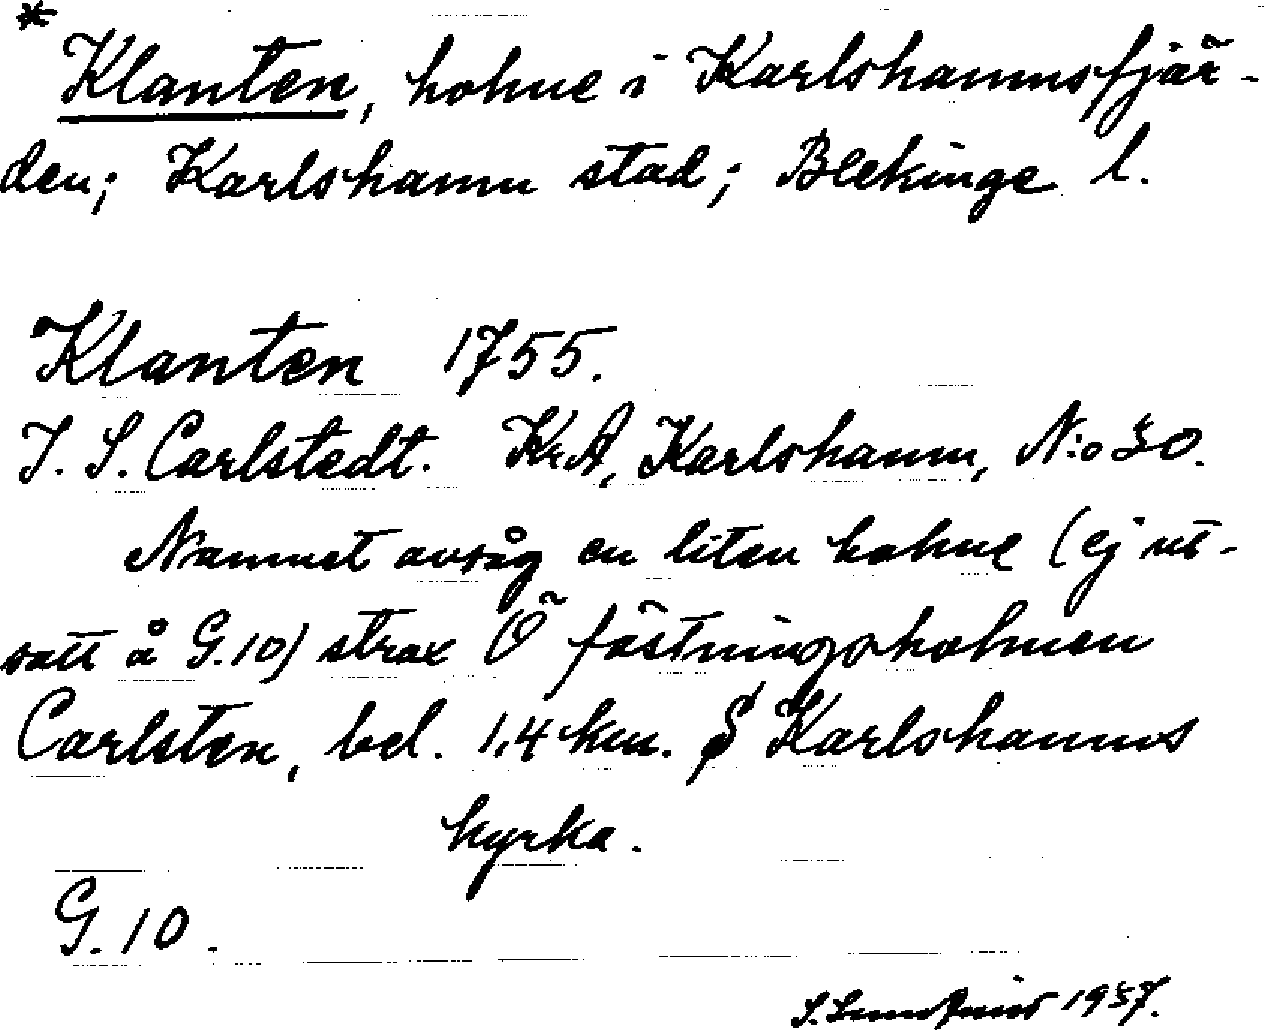 *
Klanten, holme i Karlshamnsfjär-
den; Karlshamn stad; Blekinge l.
Klanten 1755.
J. S. Carlstedt. KrA, Karlshamn, N:o 30.
Namnet avsåg en liten holme (ej ut-
satt å G.10) strax Ö fästningsholmen
Carlsten, bel. 1,4 km. S Karlshamns
kyrka.
G. 10.
1937.